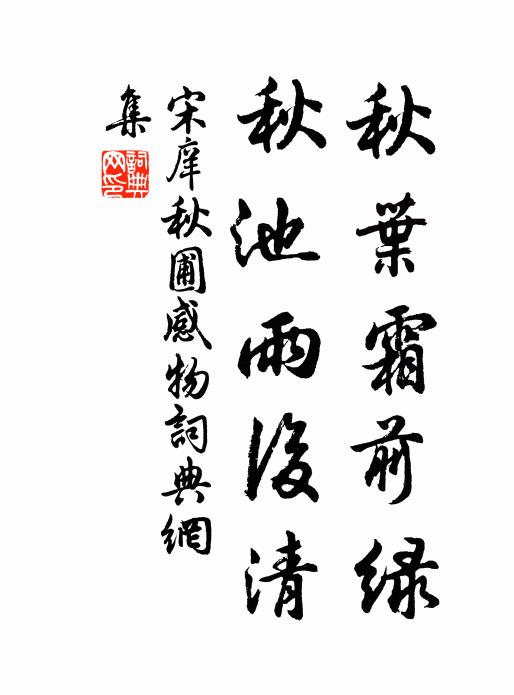 秋葉霜前綠
秋池雨後清
宋庠秋圃感物詞典網
集
詞典網印